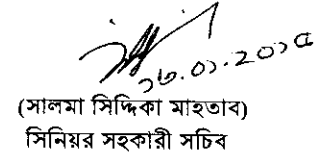 ১৬.০১.২০১৫
(সালমা সিদ্দিকা মাহতাব)
সিনিয়র সহকারী সচিব